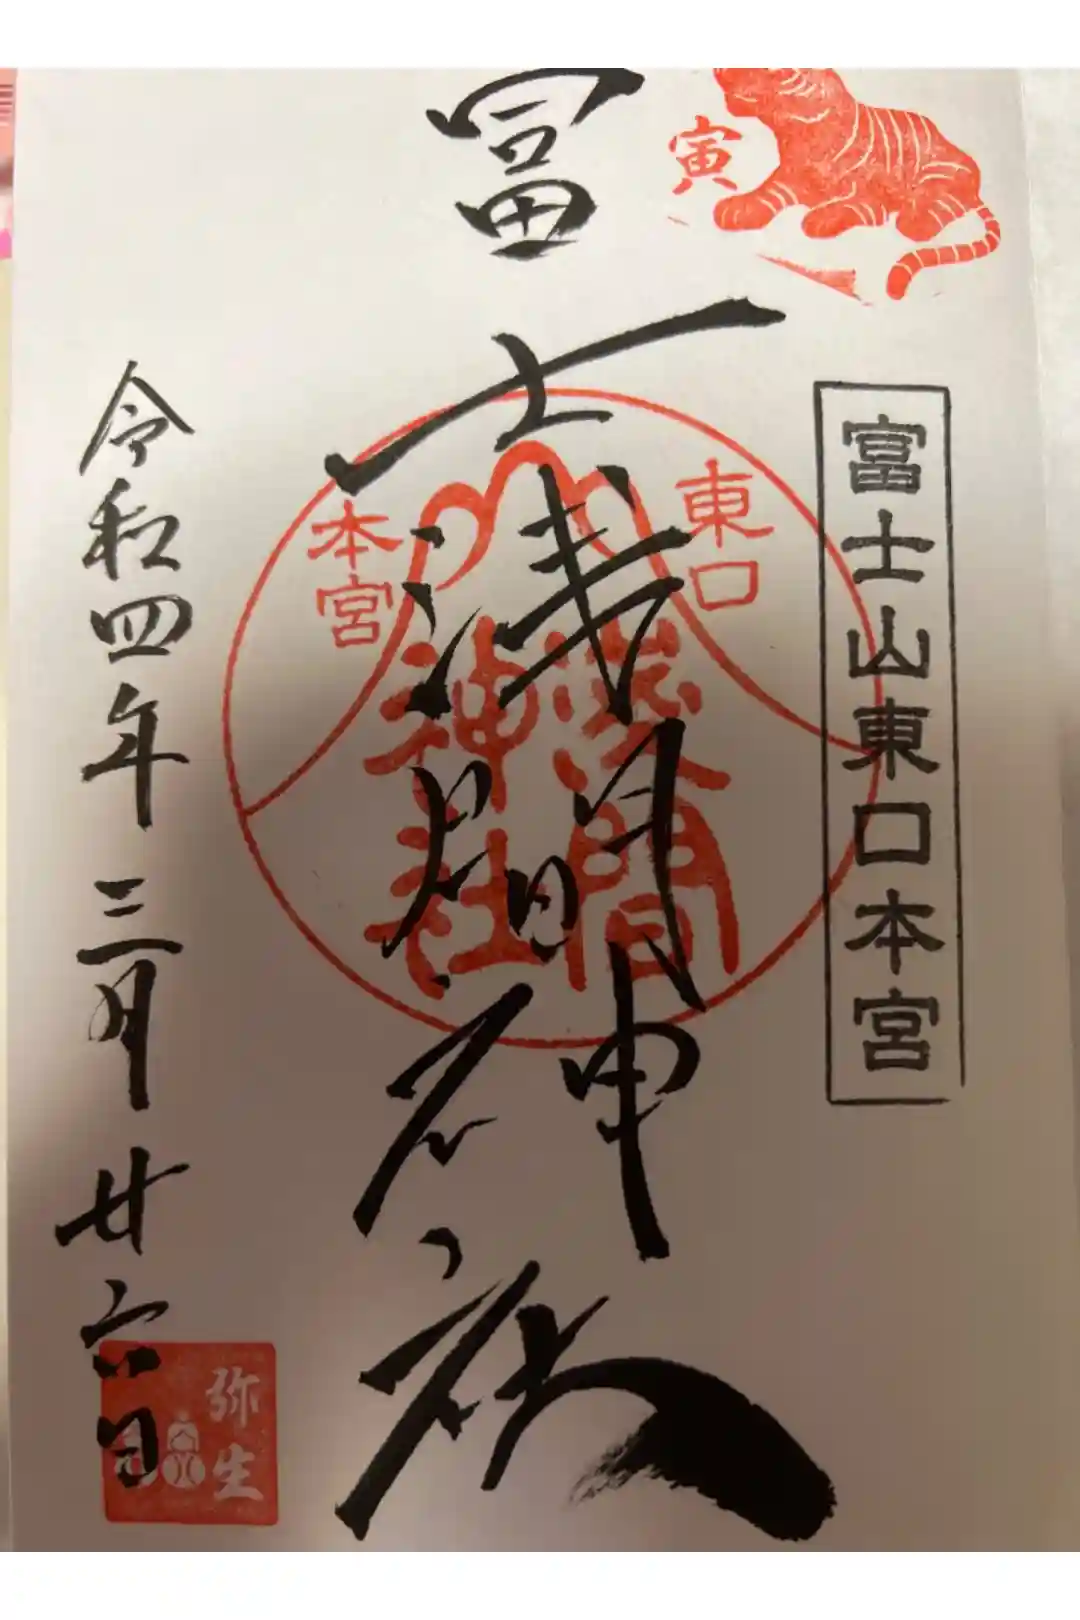 寅
富士山東口本宮
冨士浅間神社
東口
本宮
浅間
神社
令和四年三月廿六日
弥生